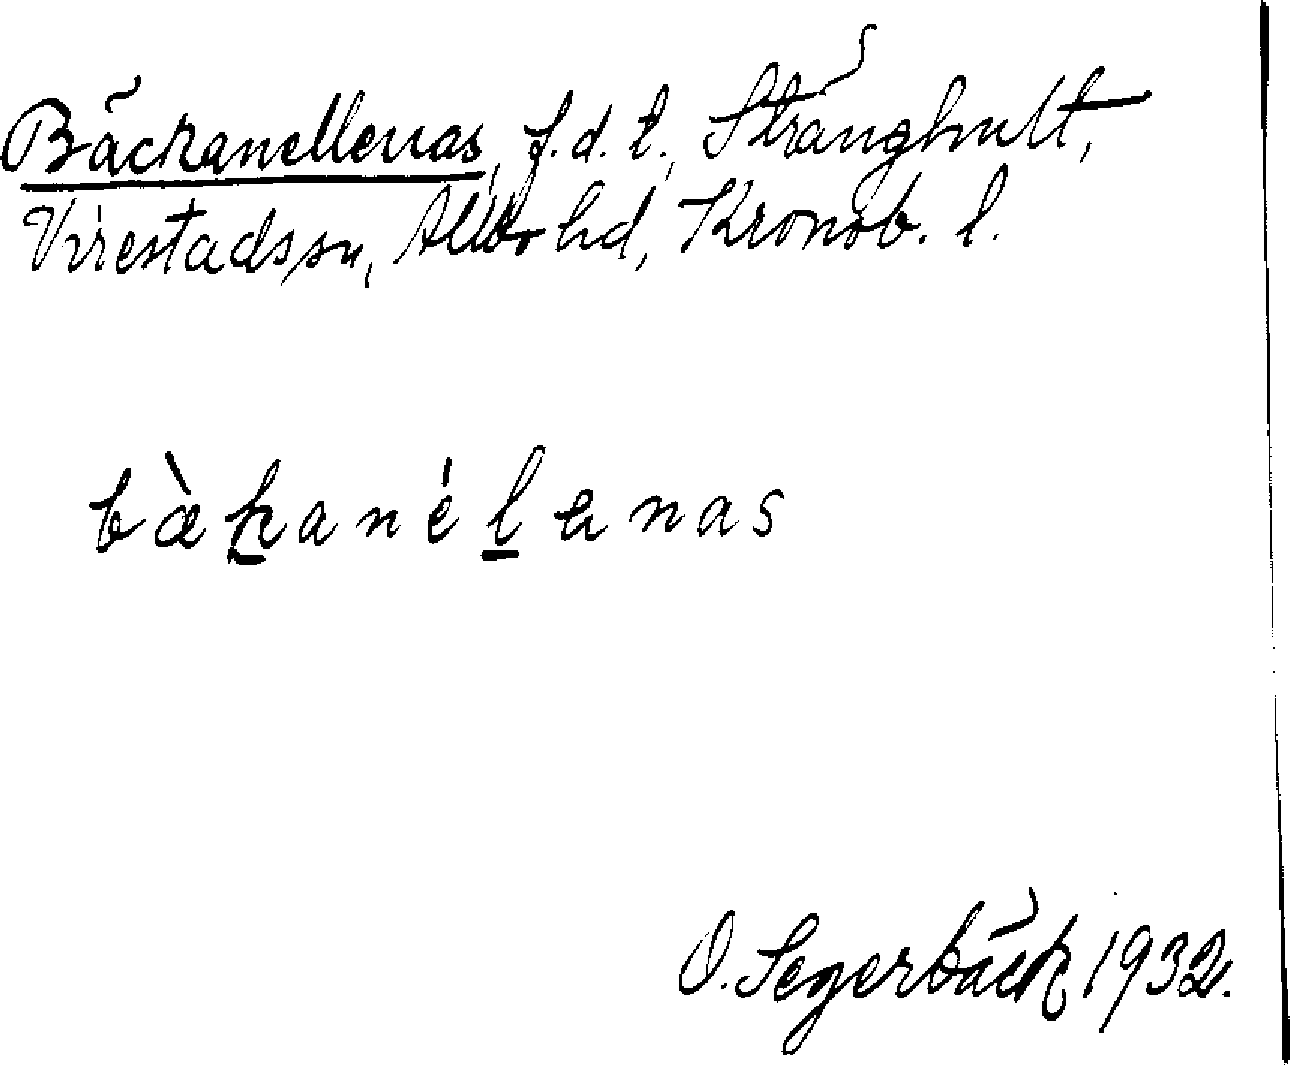 Bäckanellenas, f.d.t., Stränghult,
Virestadssn, Allbo hd, Kronob. l.
bàkanélenas
O. Segerbäck 1932.